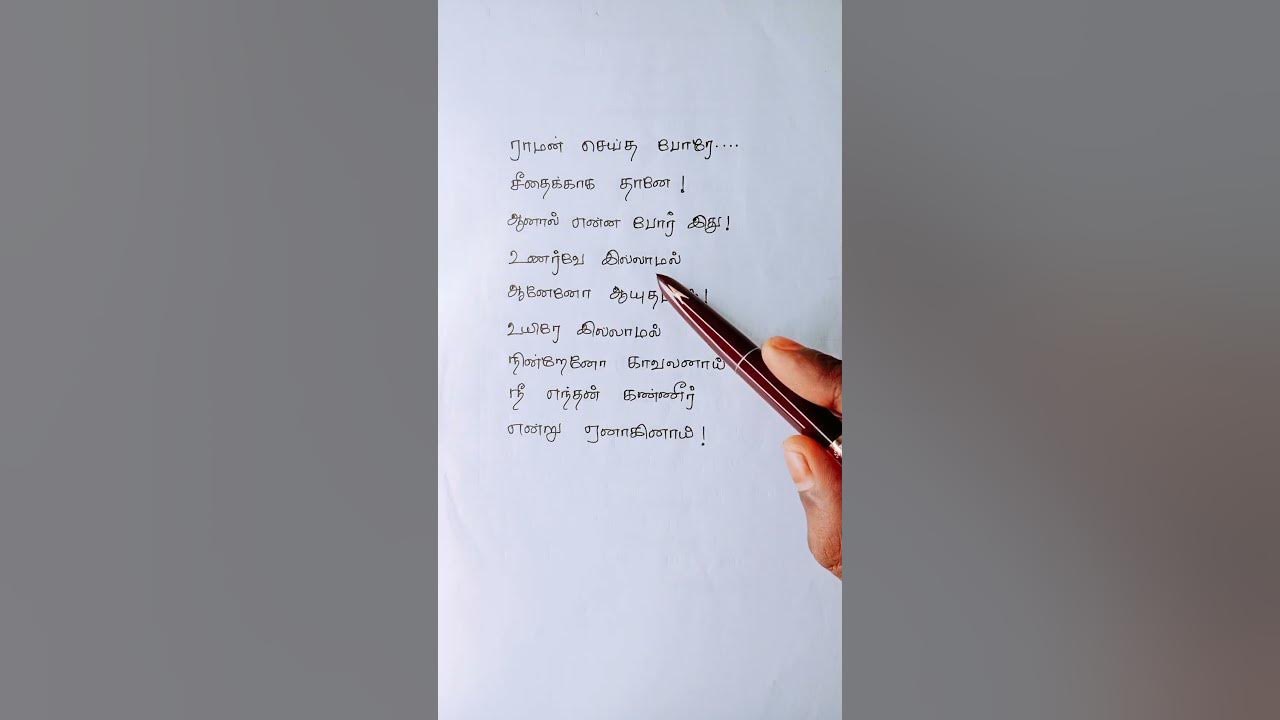 ராமன் செய்த போரே....
சீதைக்காக தானே!
ஆனால் என்ன போர் இது!
உணர்வே இல்லாமல்
ஆனேனோ
உயிரே இல்லாமல்
நின்றேனோ காவலனாய்
நீ எந்தன் கண்ணீர்
என்று ஏனாகினாய்!